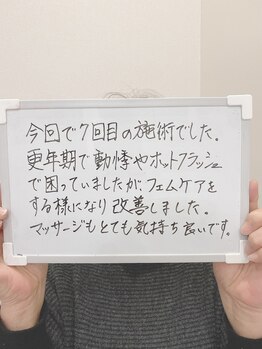 今回で7回目の施術でした。
更年期で動悸やホットフラッシュ
で困っていましたが、フェムケアを
する様になり改善しました。
マッサージもとても気持ち良いです。